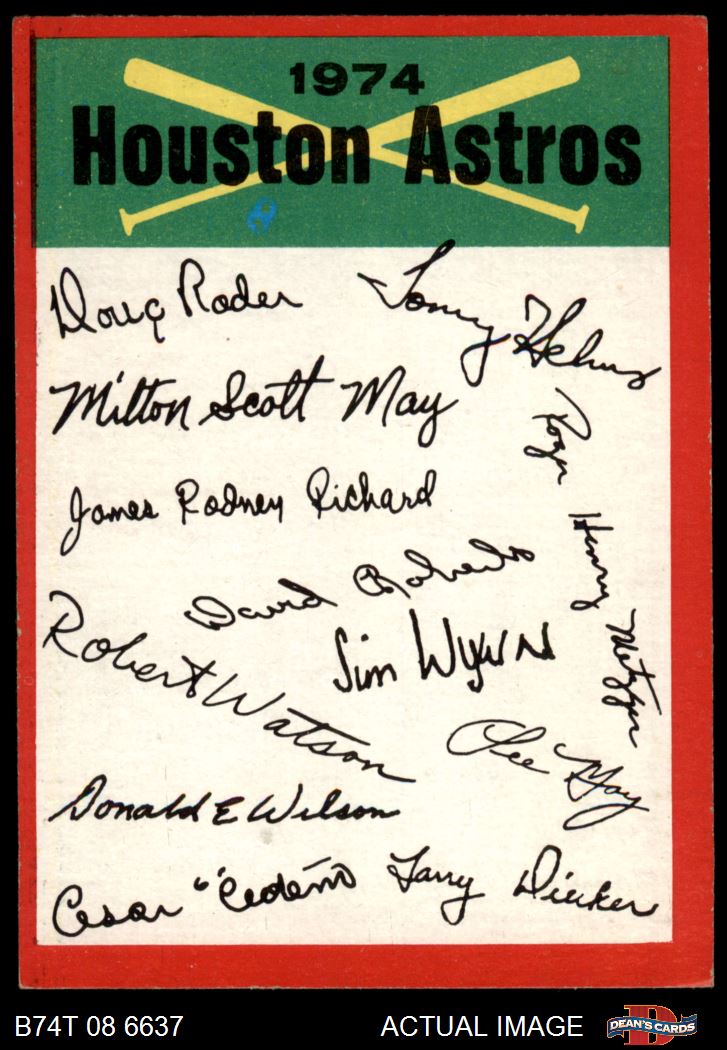 1974
Houston Astros
Doug Rader
Tommy Helms
Milton Scott May
Roger Henry Metzger
James Rodney Richard
David Roberts
Robert Watson
Jim Wynn
Lee May
Donald E Wilson
Cesar "Cedeño
Larry Dierker
B74T 08 6637
ACTUAL IMAGE
D
DEAN'S CARDS